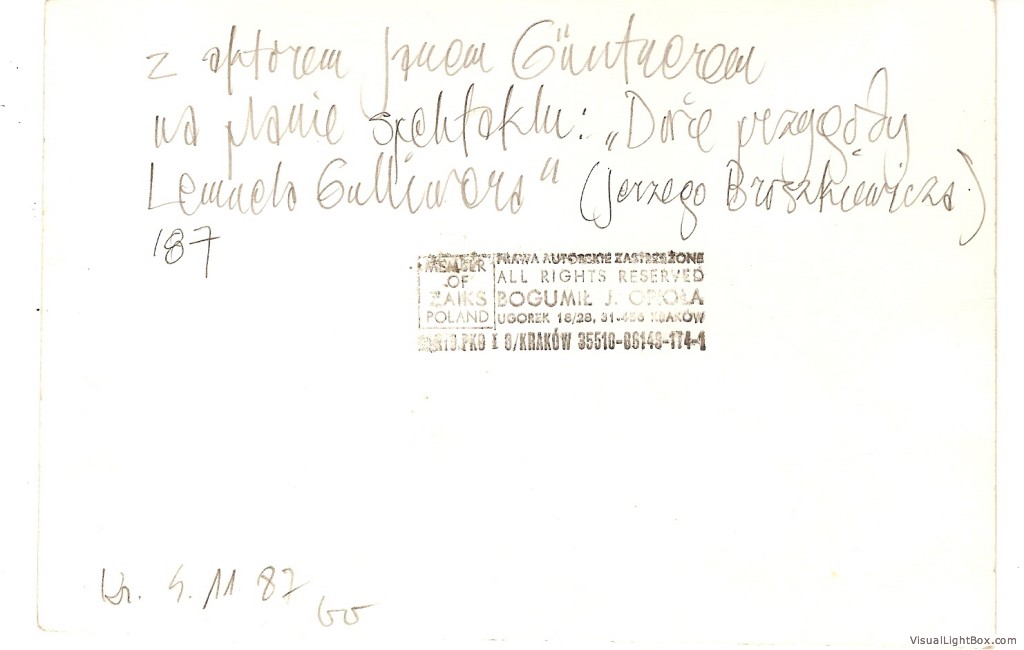 z aktorem Janem Güntnerem
na planie spektaklu: „Dwie przygody
Lemuela Gulliwera" (Jerzego Broszkiewicza)
'87
MEMBER
OF
ZAIKS
POLAND
PRAWA AUTORSKIE ZASTRZEŻONE
ALL RIGHTS RESERVED
BOGUMIŁ J. OPIOŁA
UGOREK 18/28, KRAKÓW
PKO I O/KRAKÓW 35510-66148-174-1
Kr. 5. 11 87
VisualLightBox.com